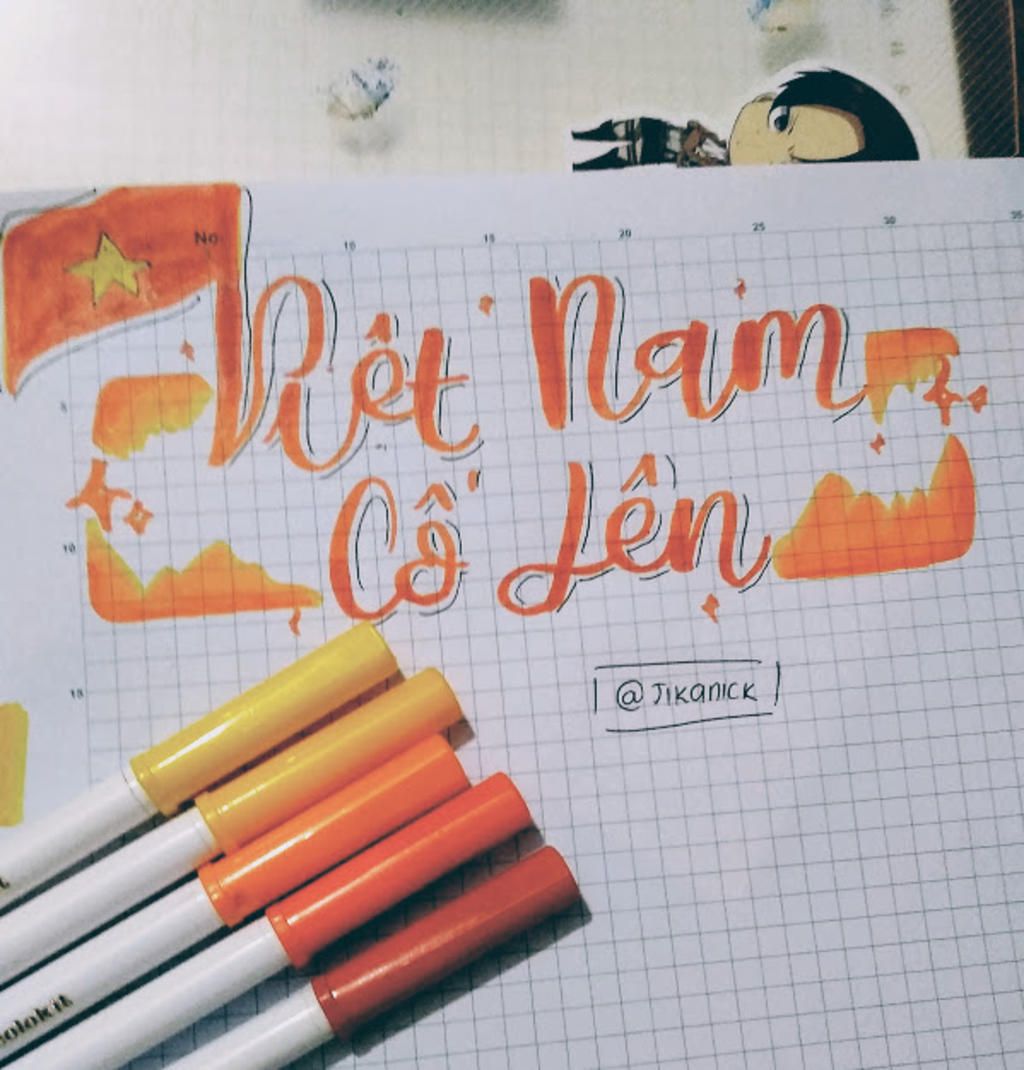 No.
10 15 20 25 30 35
Việt Nam
5
Cố Lên
10
@JIKANICK
15